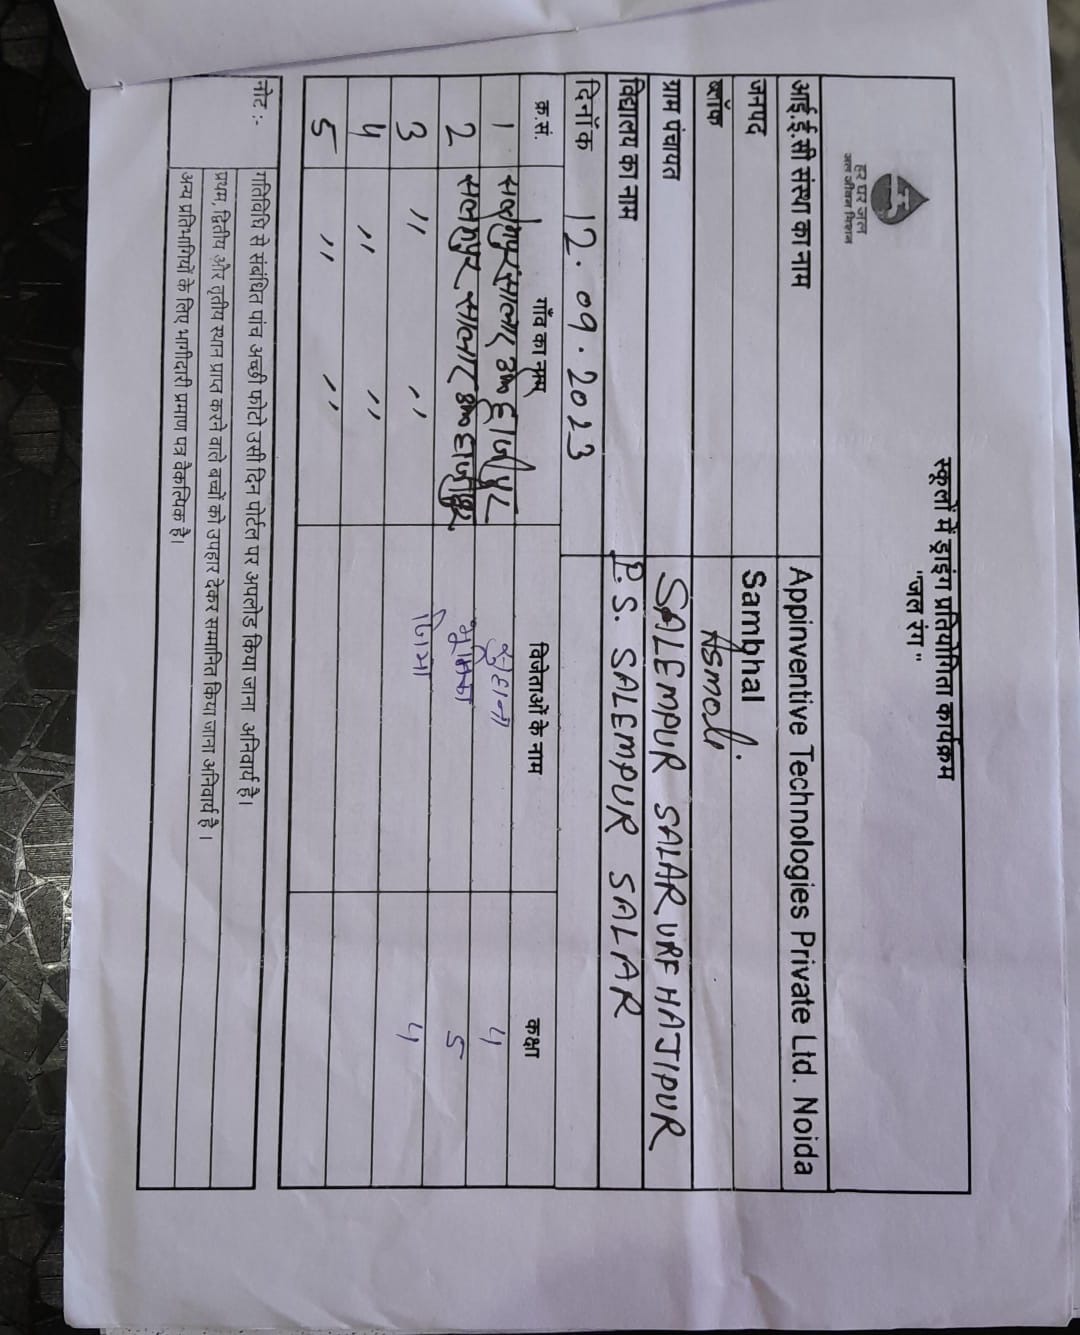 हर घर जल
जल जीवन मिशन
स्कूलों में ड्राइंग प्रतियोगिता कार्यक्रम
"जल रंग"
आई.ई.सी संस्था का नाम Appinventive Technologies Private Ltd. Noida
जनपद Sambhal
ब्लॉक Asmoli
ग्राम पंचायत SALEMPUR SALAR URF HAJIPUR
विद्यालय का नाम P.S. SALEMPUR SALAR
दिनॉक 12.09.2023
क्र.सं. गॉव का नाम विजेताओं के नाम कक्षा
1 सलेमपुर सालार उर्फ हाजीपुर सुहानी 4
2 सलेमपुर सालार उर्फ हाजीपुर भूमिका 5
3 " " 4
4 " "
5 " "
नोट :- गतिविधि से संबंधित पांच अच्छी फोटो उसी दिन पोर्टल पर अपलोड किया जाना अनिवार्य है।
प्रथम, द्वितीय और तृतीय स्थान प्राप्त करने वाले बच्चों को उपहार देकर सम्मानित किया जाना अनिवार्य है।
अन्य प्रतिभागियों के लिए भागीदारी प्रमाण पत्र वैकल्पिक है।